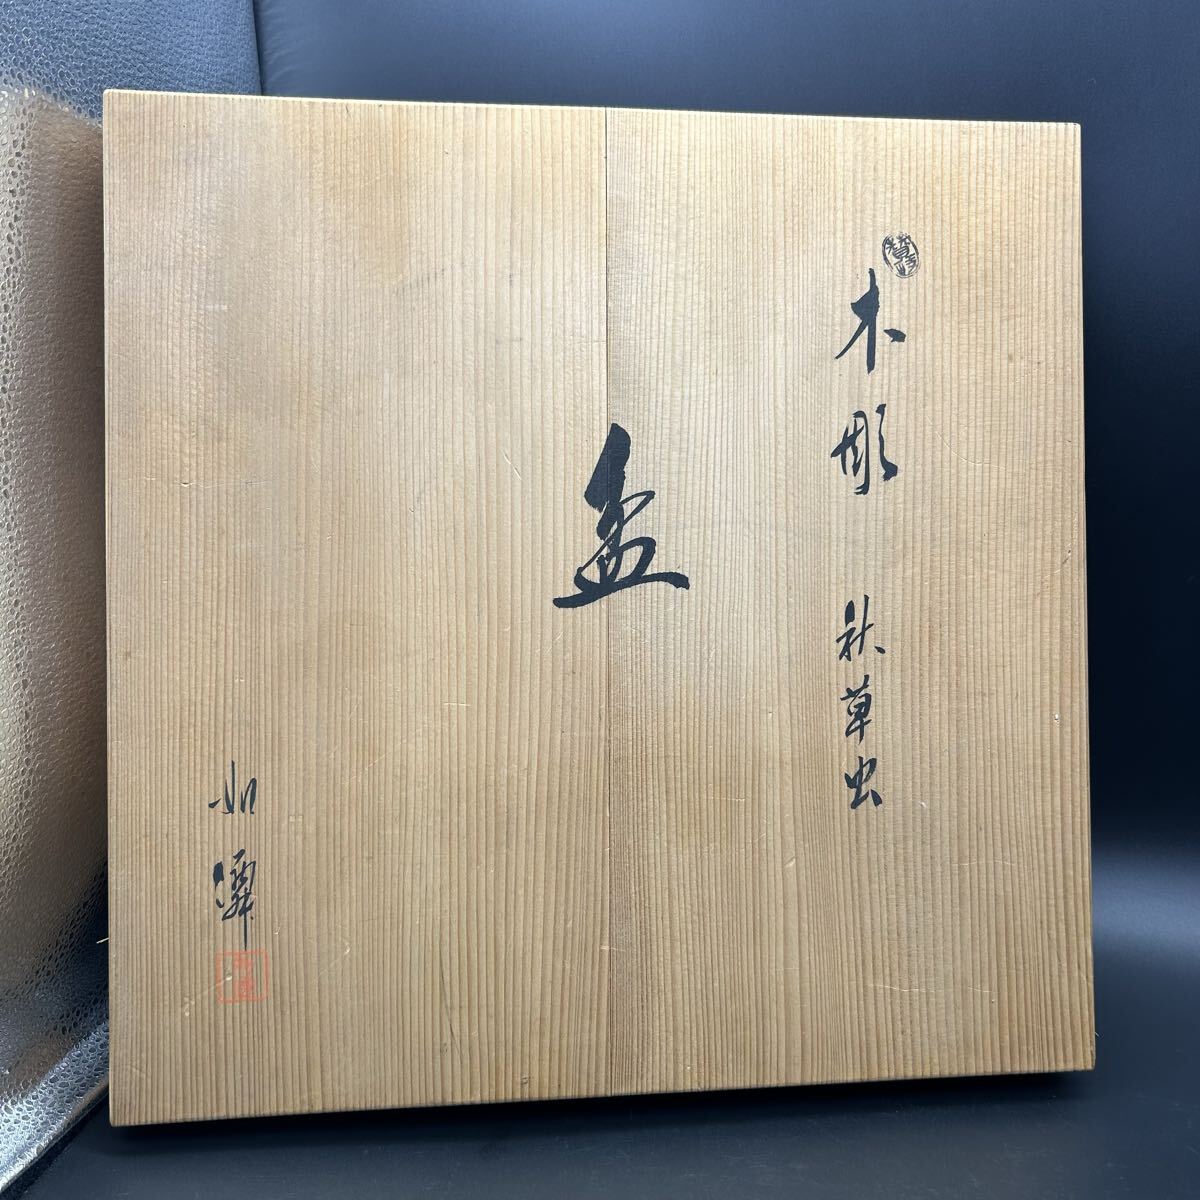 木彫 秋草虫
盆
如